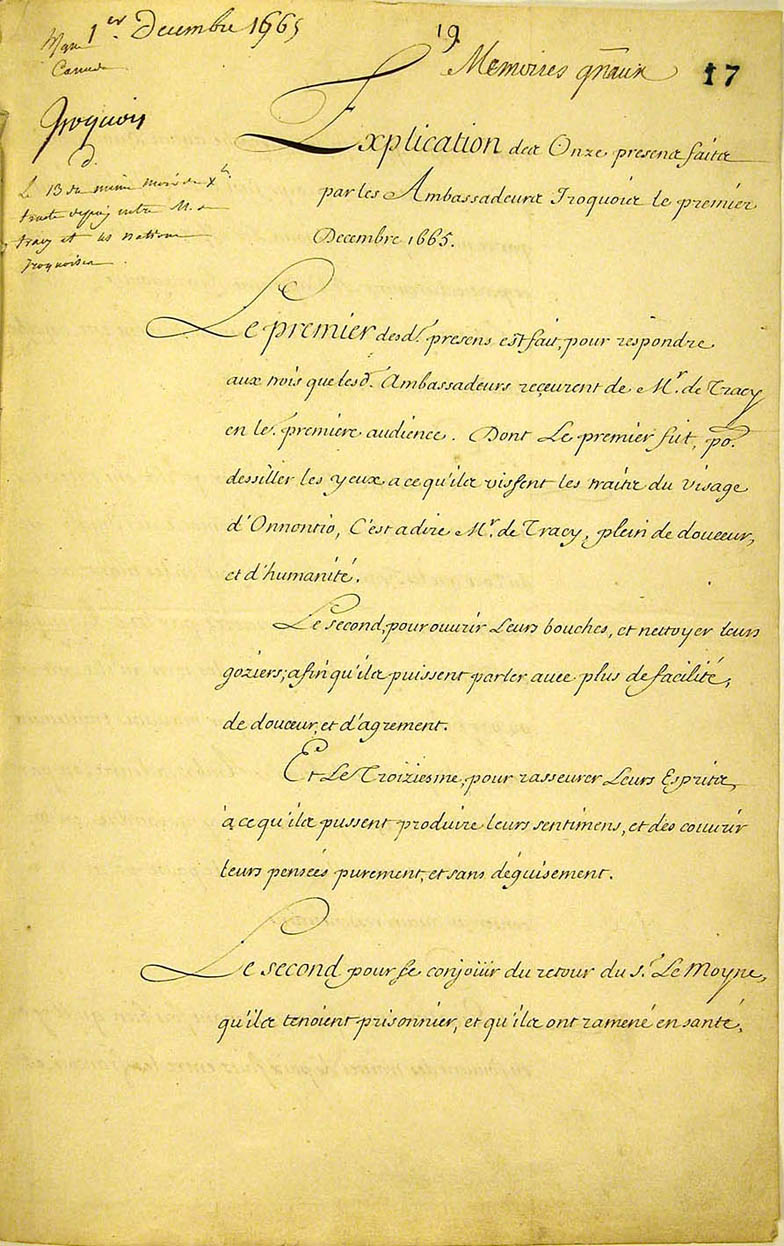 1er. Decembre 1665
19.
Memoires gn̄aux
17
Canada
Iroquois
d.
Le 13 du mesme mois de Xbre
traité depaix entre M. de
tracy et les nations
Iroquoises.
Explication des Onze presens faits
par les Ambassadeurs Iroquois le premier
Decembre 1665.
Le premier desd. presens est fait, pour respondre
aux trois que lesd. Ambassadeurs reçeurent de Mr. de Tracy
en le. premiere audience. Dont Le premier fut, po.
dessiller les yeux a ce qu'ils vissent les traits du visage
d'Onnontio, C'est a dire Mr. de Tracy, plein de douceur,
et d'humanité.
Le second, pour ouurir Leurs bouches, et nettoyer leurs
goziers; afin qu'ils puissent parler auec plus de facilité,
de douceur, et d'agrement.
Et Le Troiziesme, pour rasseurer Leurs Esprits,
à ce qu'ils pussent produire leurs sentimens, et des couurir
leurs pensées purement, et sans déguisement.
Le second pour se conjoüir du retour du s. Le Moyne,
qu'ils tenoient prisonnier, et qu'ils ont ramené en santé.